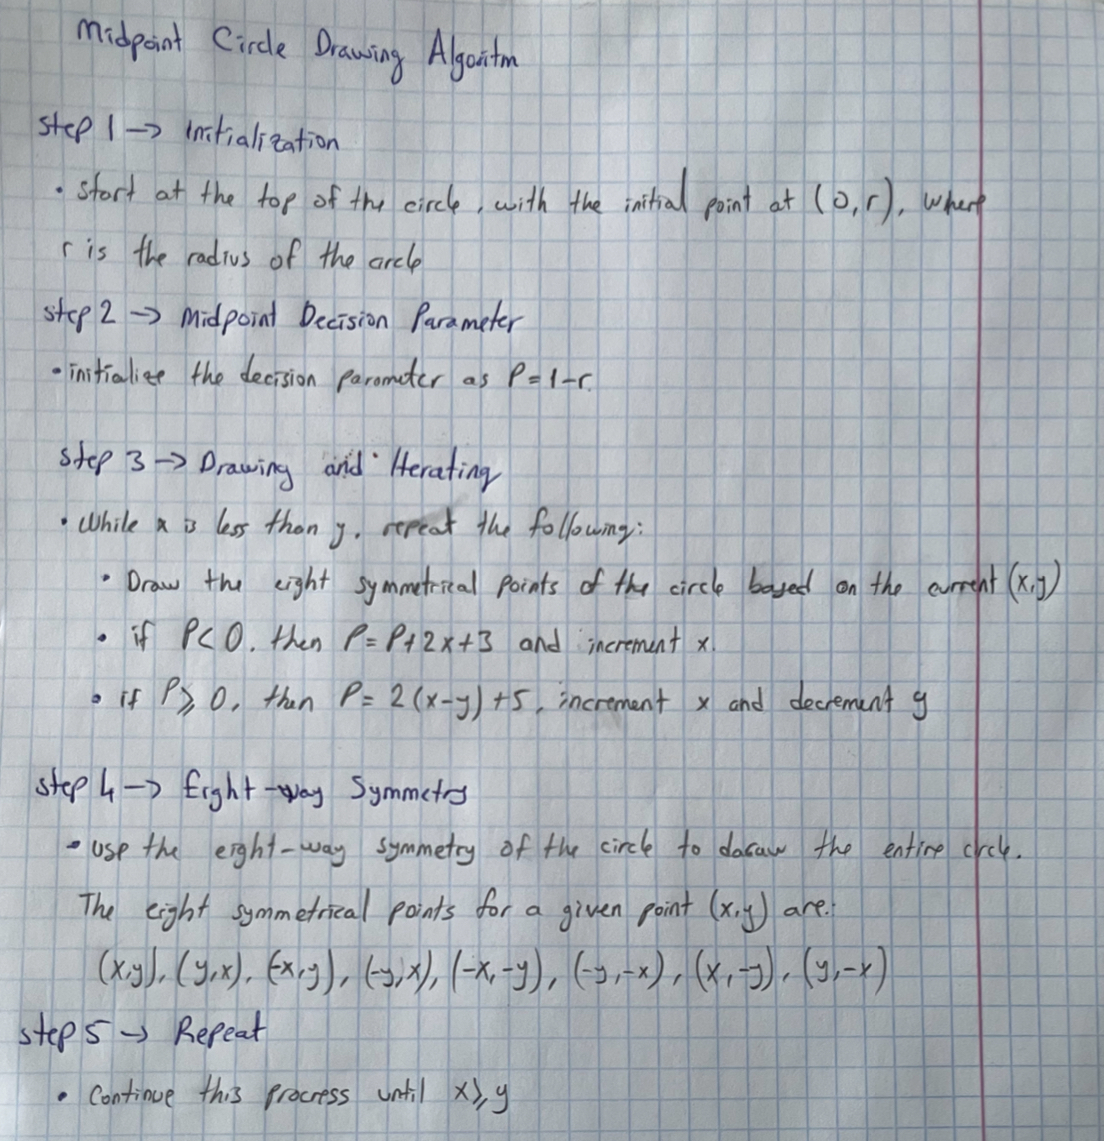 Midpoint Circle Drawing Algoritm
step 1 → Initialization
• start at the top of the circle, with the initial point at (0,r), where
r is the radius of the circle
step 2 → Midpoint Decision Parameter
• initialize the decision parameter as P=1-r.
step 3 → Drawing and Iterating
• While x is less than y, repeat the following:
• Draw the eight symmetrical points of the circle based on the current (x,y)
• if P<0, then P=P+2x+3 and increment x.
• if P⩾0, then P=2(x-y)+5, increment x and decrement y
step 4 → Eight-way Symmetry
• use the eight-way symmetry of the circle to daraw the entire circle.
The eight symmetrical points for a given point (x,y) are:
(x,y), (y,x), (-x,y), (-y,x), (-x,-y), (-y,-x), (x,-y), (y,-x)
step 5 → Repeat
• Continue this process until x⩾y